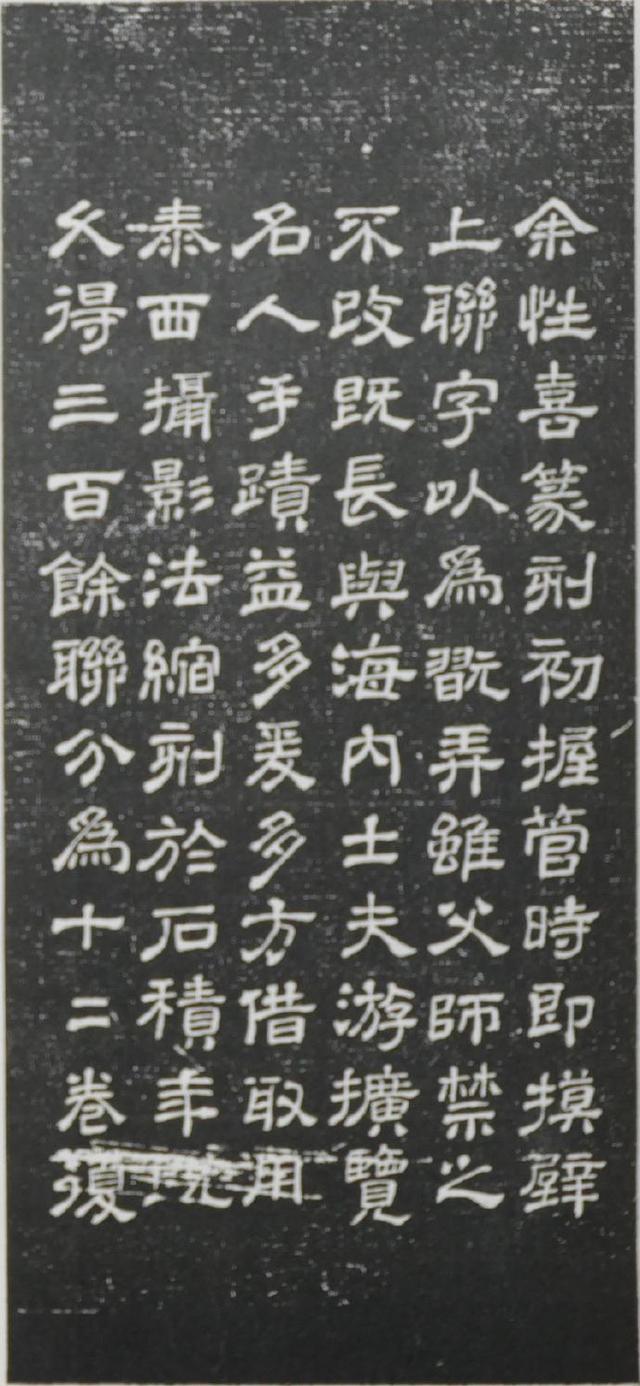 余性喜篆刻初握管時即摸壁
上聯字以爲翫弄雖父師禁之
不改既長與海內士夫游擴覽
名人手蹟益多爰多方借取用
泰西攝影法縮刻於石積年
久得三百餘聯分爲十二卷復